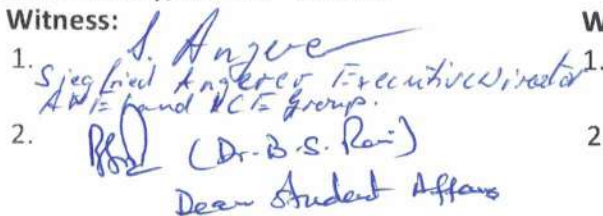 Witness: W
1. S. Angere 1.
Siegfried Angerer Executive Director
and Group.
2. (Dr. B. S. Rai) 2
Dean Student Affairs